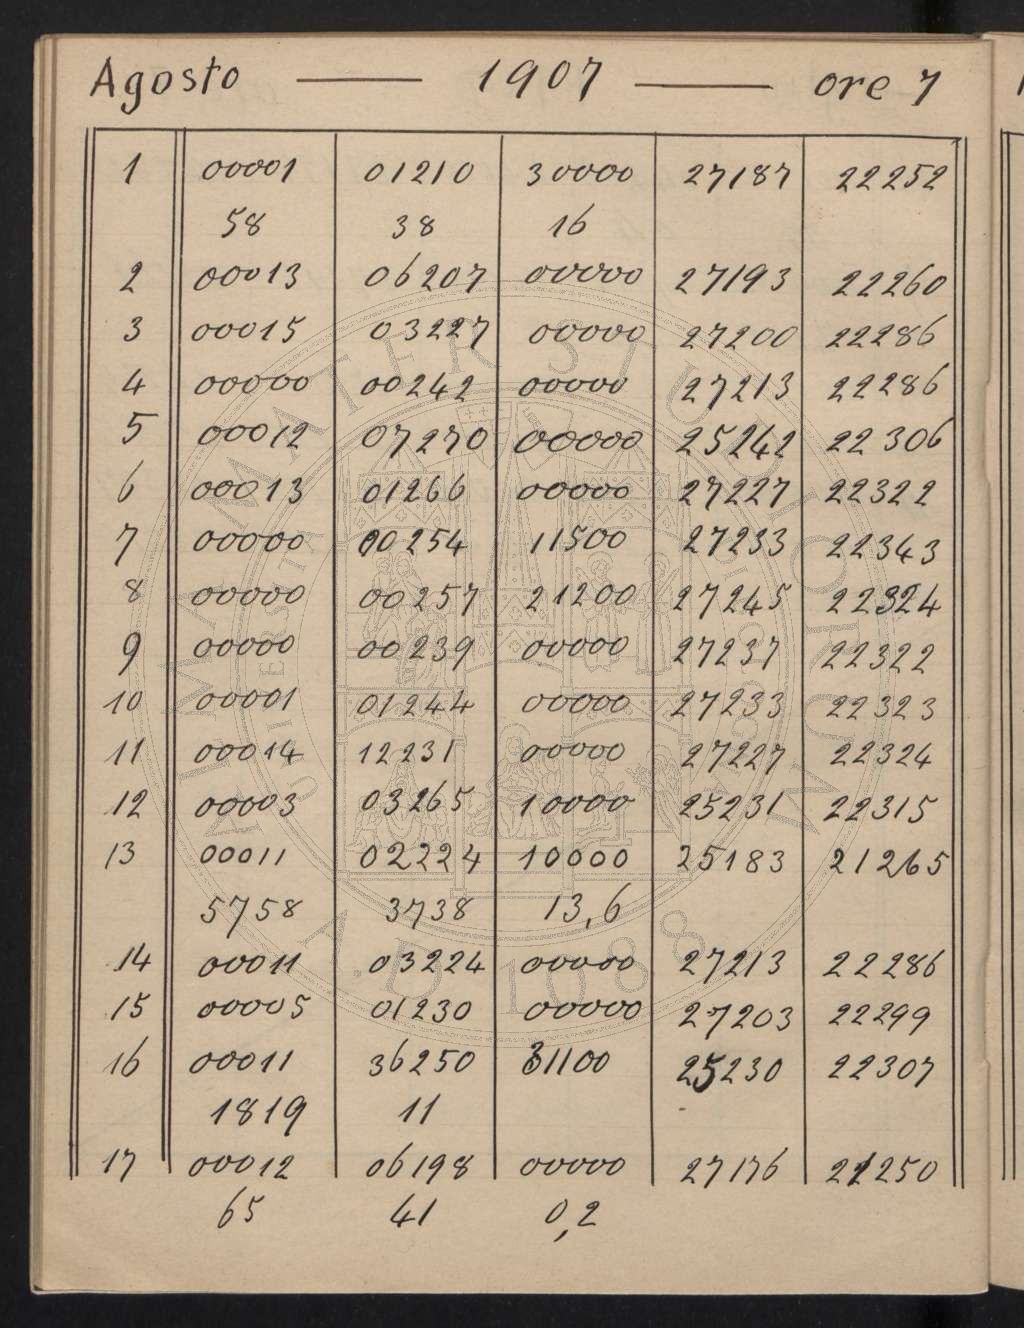 Agosto — 1907 — ore 7
1 00001 01210 30000 27187 22252
58 38 16
2 00013 06207 00000 27193 22260
3 00015 03227 00000 27200 22286
4 00000 00242 00000 27213 22286
5 00012 07270 00000 25242 22306
6 00013 01266 00000 27227 22322
7 00000 00254 11500 27233 22343
8 00000 00257 21200 27245 22324
9 00000 00239 00000 27237 22322
10 00001 01244 00000 27233 22323
11 00014 12231 00000 27227 22324
12 00003 03265 10000 25231 22315
13 00011 02224 10000 25183 21265
5758 3738 13,6
14 00011 03224 00000 27213 22286
15 00005 01230 00000 27203 22299
16 00011 36250 31100 25230 22307
1819 11
17 00012 06198 00000 27176 21250
65 41 0,2
ALMA MATER STUDIORUM
A.D. 1088